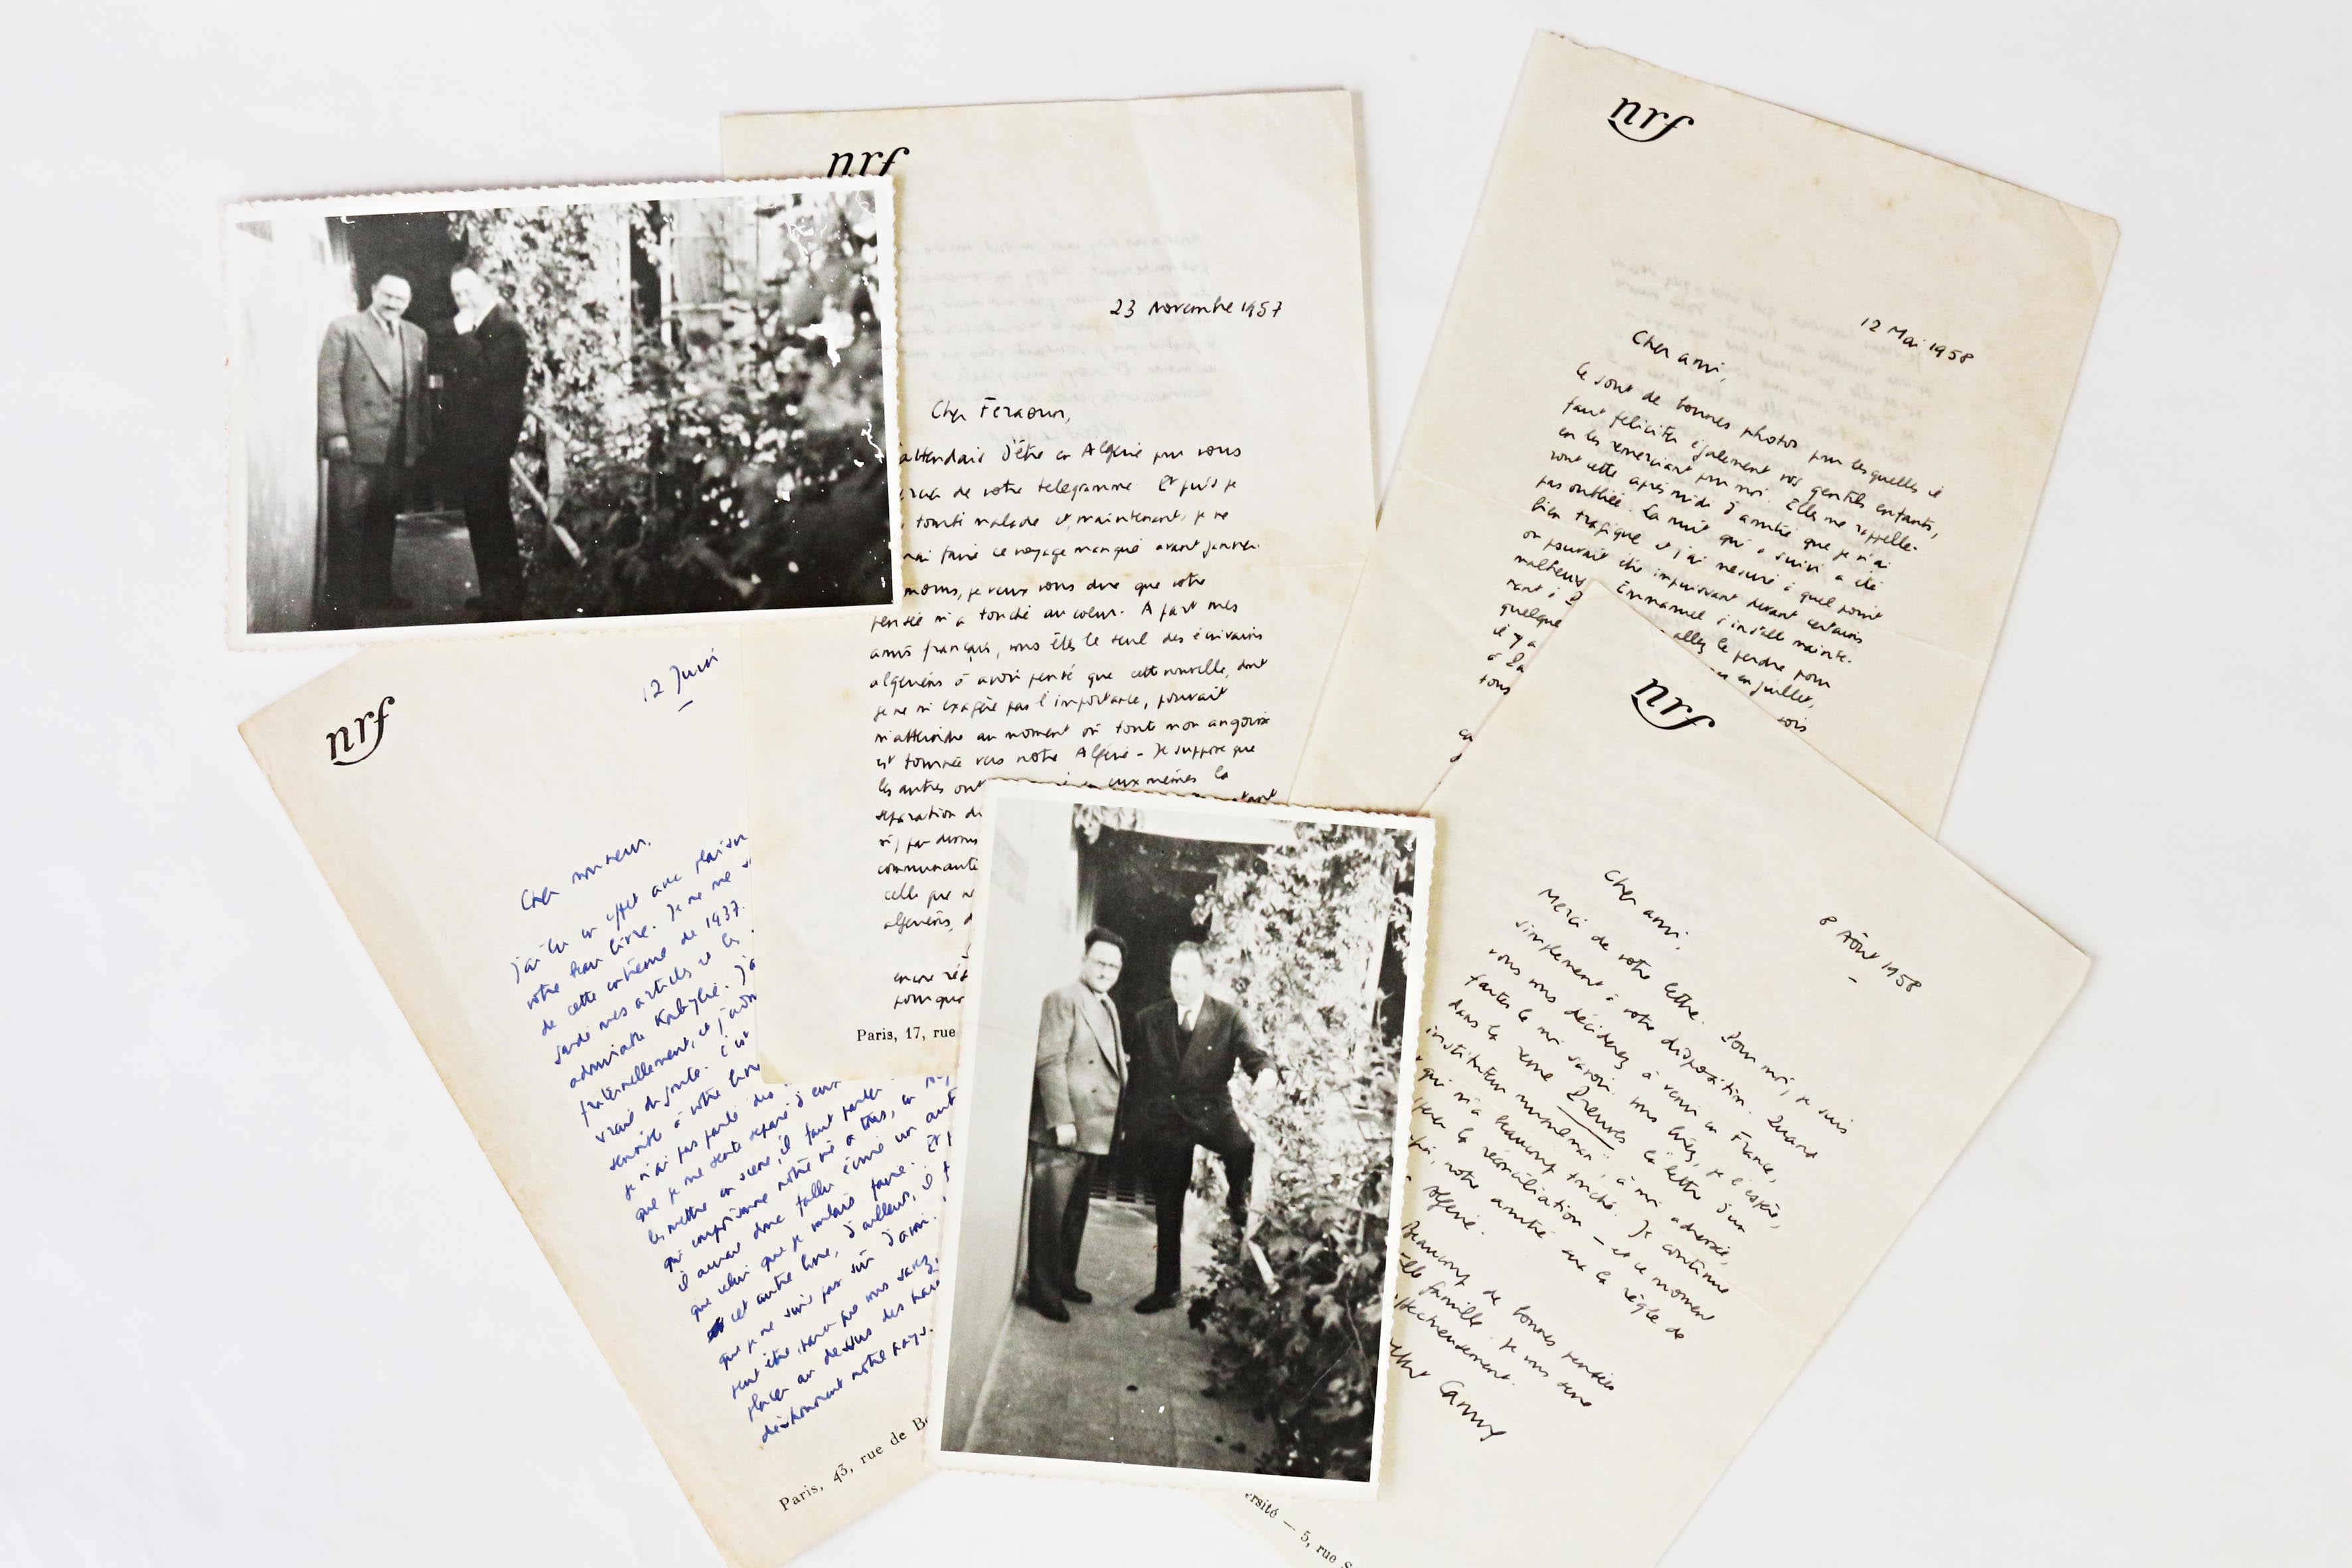 nrf
23 Novembre 1957
Cher Feraoun,
attendais d'être en Algérie pour vous
de votre télégramme. Et puis je
tombé malade et, maintenant, je ne
faire ce voyage manqué avant janvier.
moins, je veux vous dire que votre
pensée m'a touché au coeur. A part mes
amis français, vous êtes le seul des écrivains
algériens à avoir pensé que cette nouvelle, dont
je ne m'exagère pas l'importance, pouvait
m'atteindre au moment où toute mon angoisse
est tournée vers notre Algérie - Je suppose que
les autres ont eux mêmes la
séparation de
si, par dessus
communauté
celle que n
algériens, d
encore
pourquoi
Paris, 17, rue
nrf
12 Mai 1958
Cher ami,
Ce sont de bonnes photos pour lesquelles il
faut féliciter également vos gentils enfants,
en les remerciant pour moi. Elles me rappelle-
ront cette après midi d'amitié que je n'ai
pas oubliée. La nuit qui a suivi a été
bien tragique et j'ai mesuré à quel point
on pouvait être impuissant devant certains
malheurs Emmanuel s'installe mainte-
nant à allez le perdre pour
quelque en juillet,
il y a
à la
tous
nrf
12 Juin
Cher monsieur,
j'ai lu en effet avec plaisir
votre beau livre. Je ne me
de cette antienne de 1937.
gardé mes articles et les
admirable Kabylie. J'a
fraternellement, et j'
vrai du joute. C'est
sensible à votre livre
je n'ai pas parlé des
que je me sente séparé j'eusse
les mettre en scène, il faut parler
qui empoisonne notre vie à tous, en
il aurait donc fallu écrire un autre
que celui que je voulais faire. Et
cet autre livre, d'ailleurs, il
que je ne suis pas sûr d'avoir.
peut être, parce que vous savez,
placer au dessus des hai
déshonorent notre pays.
Paris, 43, rue de Be
nrf
8 Août 1958
Cher ami,
Merci de votre lettre. Pour moi, je suis
simplement à votre disposition. Quand
vous vous déciderez à venir en France,
faites le moi savoir. Vous lirez, je l'espère,
dans la revue Preuves la lettre d'un
instituteur musulman, à moi adressée,
qui m'a beaucoup touché. Je continue
la réconciliation - et ce moment
notre amitié sera la règle de
Algérie.
Beaucoup de bonnes pensées
famille. Je vous serre
affectueusement.
Camus
ersité — 5, rue S